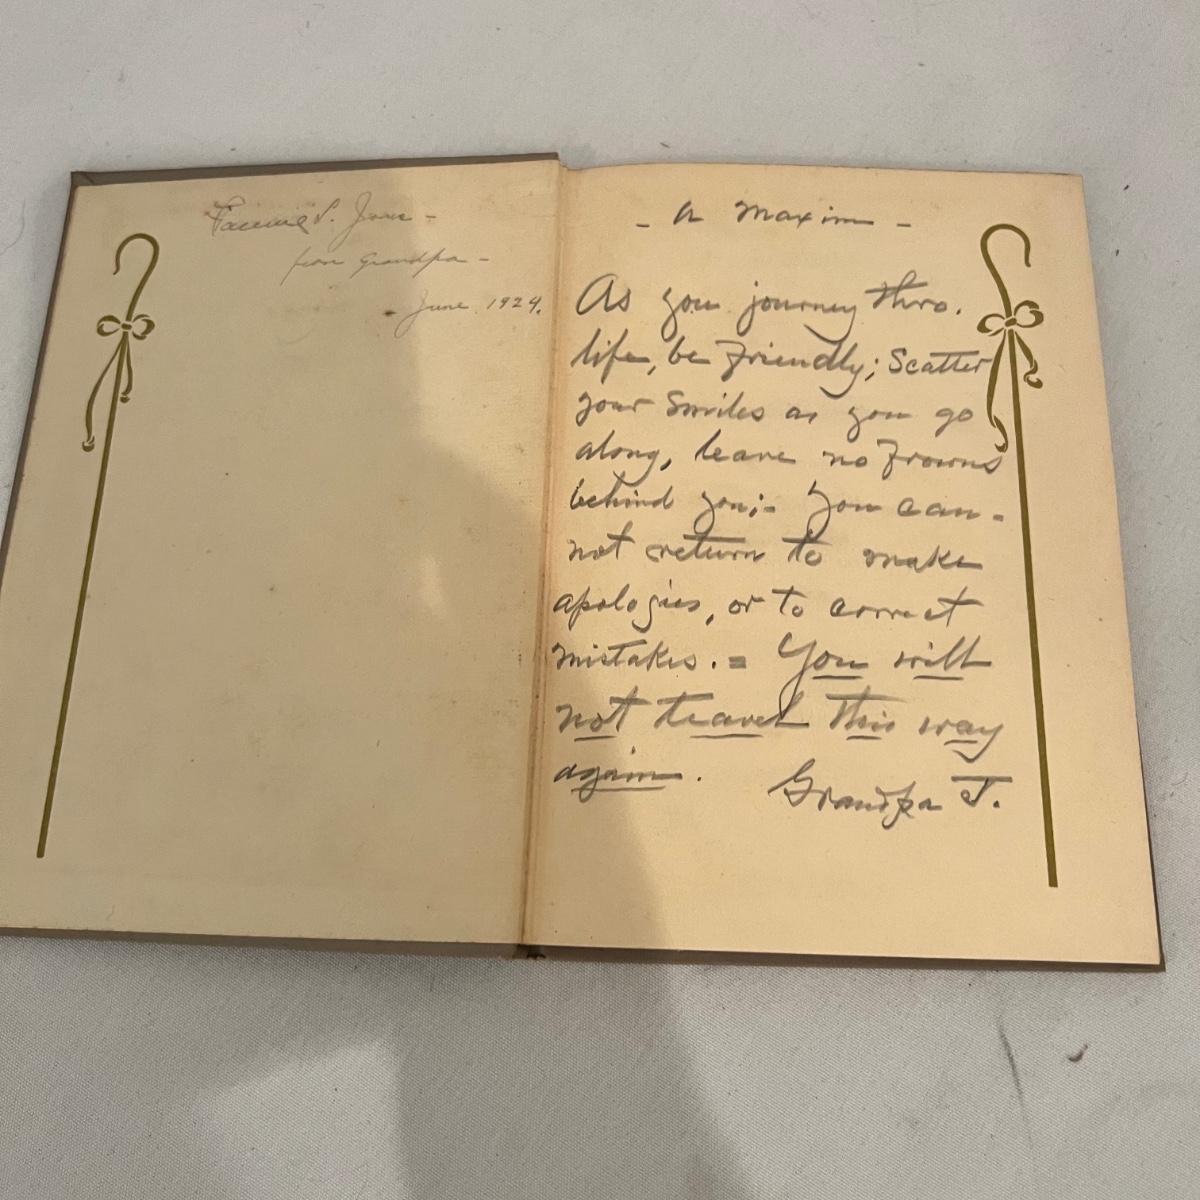 Fannie S. Jones -
from Grandpa -
June 1924.
- A Maxim -
As you journey thro.
life, be friendly; Scatter
your smiles as you go
along, leave no frowns
behind you;- You can-
not return to make
apologies, or to correct
mistakes. = You will
not travel this way
again. Grandpa J.